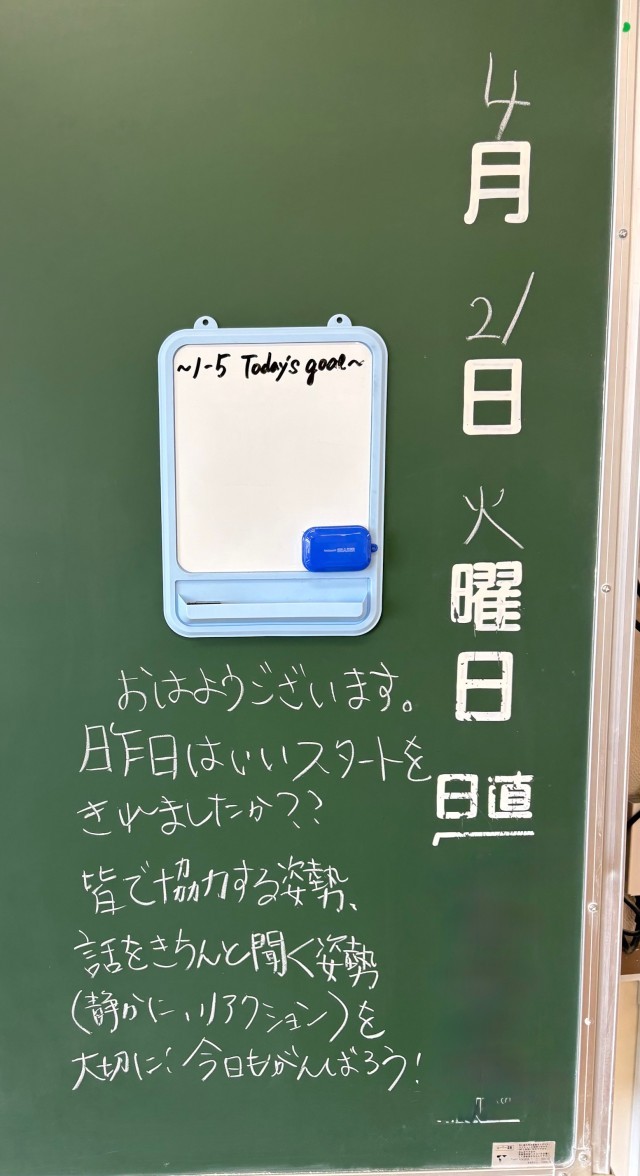 4月21日火曜日
日直
~1-5 Today's goal~
おはようございます。
昨日はいいスタートを
きれましたか??
皆で協力する姿勢、
話をきちんと聞く姿勢
(静かに、リアクション)を
大切に! 今日もがんばろう!